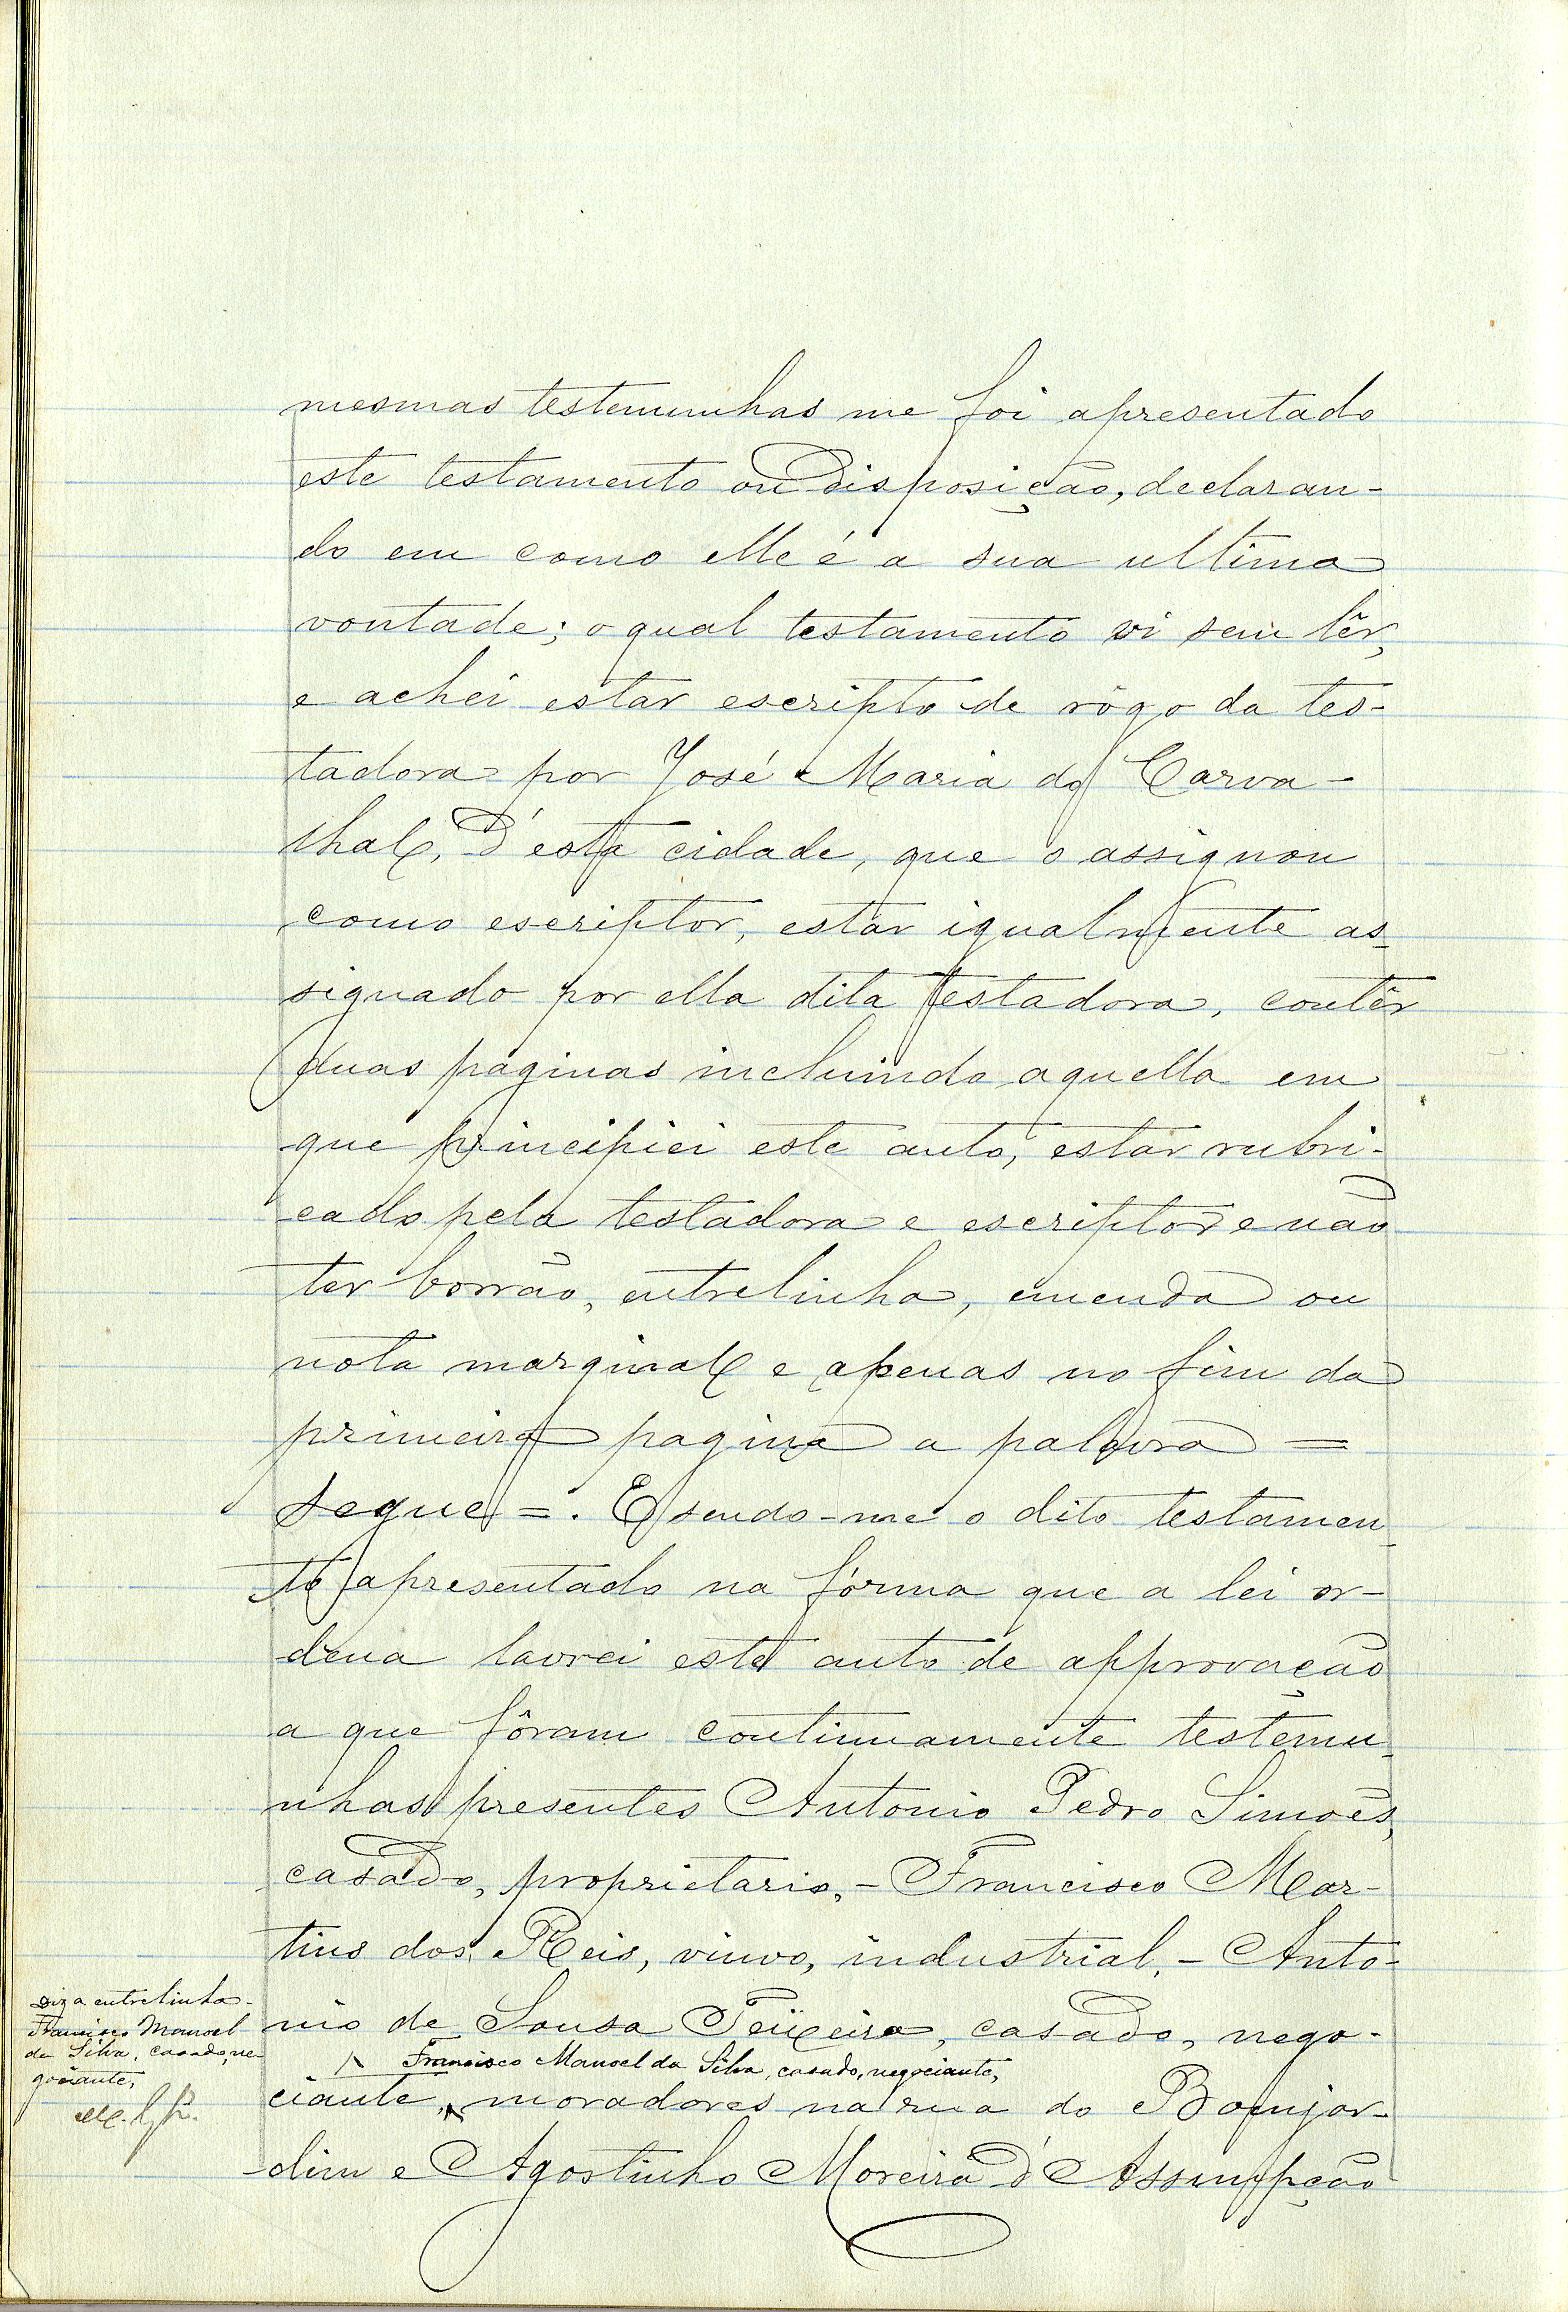 mesmas testemunhas me foi apresentado
este testamento ou disposição, declaran-
do em como elle é a sua ultima
vontade; o qual testamento vi sem lêr,
e achei estar escripto de rôgo da tes-
tadora por José Maria do Carva-
lhal, d'esta cidade, que o assignou
como escriptor, estar igualmente as-
signado por ella dita testadora, contêr
duas paginas incluindo aquella em
que principiei este auto, estar rubri-
cado pela testadora e escriptor e não
ter borrão, entrelinha, emenda ou
nota marginal e apenas no fim da
primeira pagina a palavra =
segue =. E sendo-me o dito testamen-
to apresentado na fórma que a lei or-
dena lavrei este auto de approvação
a que fôram continuamente testemu-
nhas presentes Antonio Pedro Simoes,
casado, proprietario, - Francisco Mar-
tins dos Reis, viuvo, industrial, - Anto-
nio de Sousa Teixeira, casado, nego-
Francisco Manoel da Silva, casado, negociante,
ciante, moradores na rua do Bomjar-
dim e Agostinho Moreira d'Assumpção
Diz a entrelinha-
Francisco Manoel
da Silva, casado, ne-
gociante,